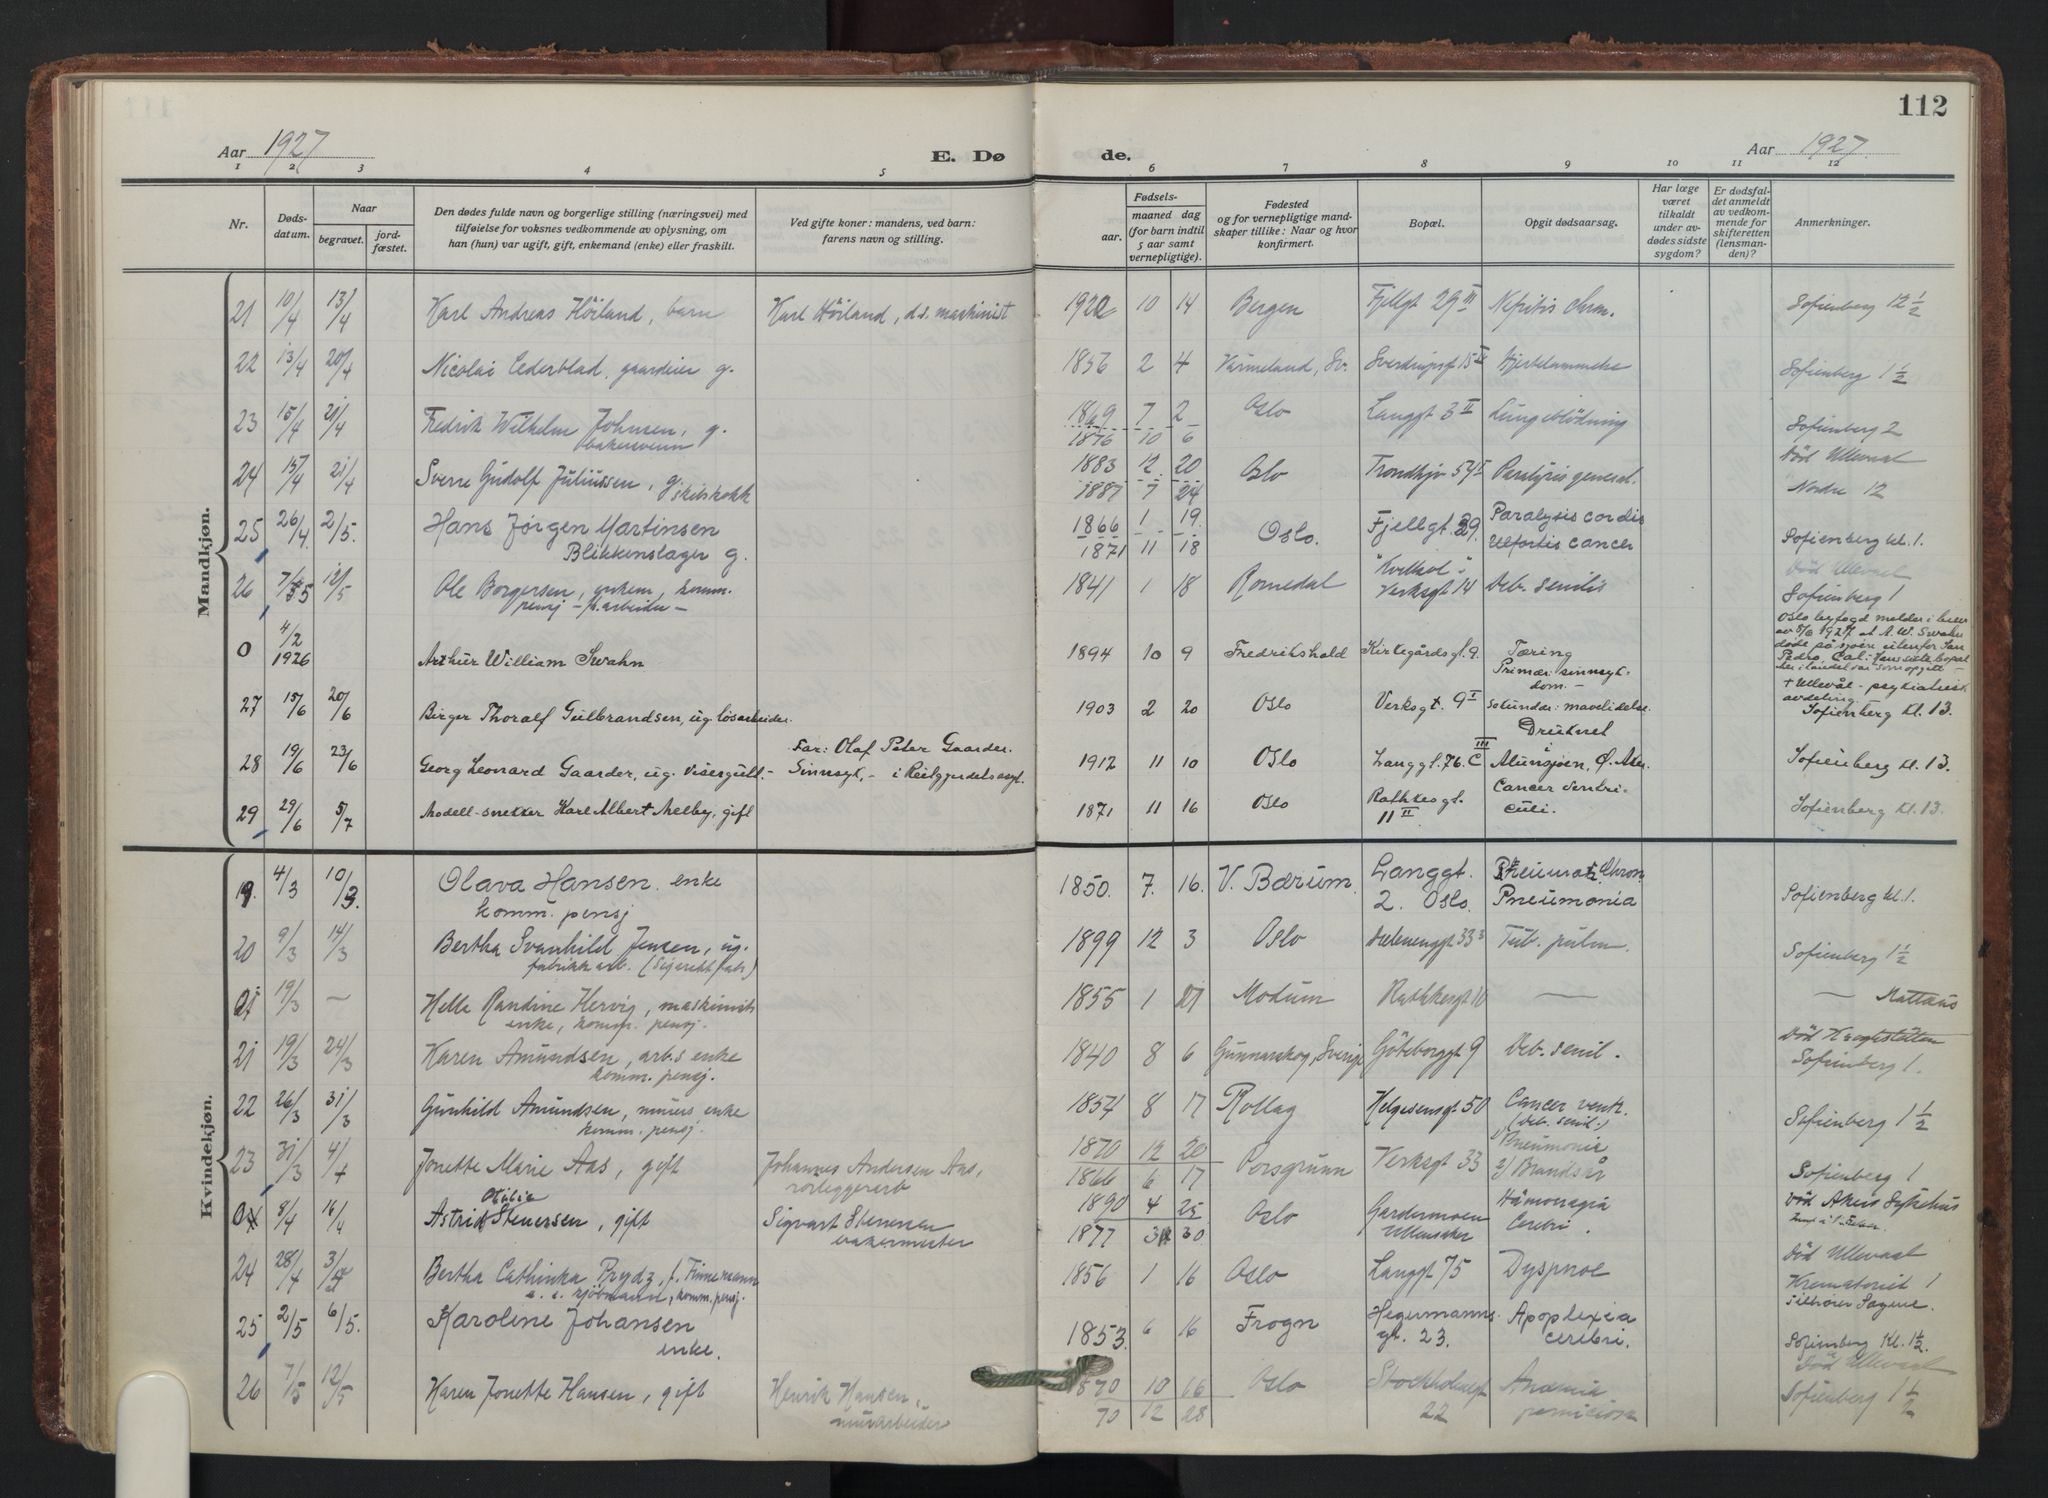 112
Aar 1927
E. Dø
de.
Aar 1927
1 2 3 4 5
6 7 8 9 10 11 12
Nr.
Døds-datum.
Naar
begravet.
jord-fæstet.
Den dødes fulde navn og borgerlige stilling (næringsvei) med
tilføielse for voksnes vedkommende av oplysning, om
han (hun) var ugift, gift, enkemand (enke) eller fraskilt.
Ved gifte koner: mandens, ved barn:
farens navn og stilling.
Fødsels-
aar.
maaned dag
(for barn indtil
5 aar samt
vernepligtige).
Fødested
og for vernepligtige mand-
skaper tillike: Naar og hvor
konfirmert.
Bopæl.
Opgit dødsaarsag.
Har læge
været
tilkaldt
under av-
dødes sidste
sygdom?
Er dødsfal-
det anmeldt
av vedkom-
mende for
skifteretten
(lensman-
den)?
Anmerkninger.
Mandkjøn.
21 10/4 13/4 Karl Andreas Höiland, barn Karl Höiland, d.s. maskinist 1922 10 14 Bergen Fjellgt 29 III Nefritis chron. Sofienberg 12 1/2
22 13/4 20/4 Nicolai Cederblad, gaardeier g. 1856 2 4 Värmeland, Sv. Sverdrupsgt 15 II Hjertelammelse Sofienberg 1 1/2
23 15/4 21/4 Fredrik Wilhelm Johnsen, g. 1869 7 2 Oslo Langgt 3 II Lungeblödning
bakersvenn 1876 10 6 Sofienberg 2
24 15/4 21/4 Sverre Gudolf Juliussen, g. skibskokk 1883 12 20 Oslo Trondhjv 57 I Paralysis general. Död Ullevaal
1887 7 24 Nordre 12
25 26/4 2/5. Hans Jørgen Martinsen 1866 1 19 Oslo. Fjellgt. 29. Paralysis cordis
Blikkenslager g. 1871 11 18 cancer Sofienberg kl. 1.
26 7/5 12/5 Ole Borgersen, enkem, komm. 1841 1 18 Romedal "Kvilhol" Verksgt 14 Deb. senilis Död Ullevaal
pensj - f. arbeider - Sofienberg 1
0 4/2 1926 Arthur William Swahn 1894 10 9 Fredrikshald Kirkegårdsgt. 9. Tæring Oslo byfogd melder i brev
av 8/6 1927 at A. W. Swahn
døde på sjøen utenfor San
Pedro, Cal. Hans siste bopæl
her i landet var som opgitt -
27 15/6 20/6 Birger Thoralf Gulbrandsen, ug. løsarbeider. 1903 2 20 Oslo Verksgt. 9 I Primær: sinnsyk-
dom. -
sekundær: mavelidelse. + Ullevål - psykiatrisk
avdeling
Sofienberg kl. 13.
28 19/6 23/6 Georg Leonard Gaarder, ug. visergutt. - Far: Olaf Peter Gaarder.
Sinnsyk, - i Reitgjerdets asyl. 1912 11 10 Oslo Langgt. 76. C III Druknet
i
Alunsjøen, Ø. Aker Sofienberg kl. 13.
29 29/6 5/7 Modell-snekker Karl Albert Melby, gift 1871 11 16 Oslo Rathkesgt.
11 II Cancer ventri-
culi. Sofienberg kl. 13.
Kvindekjøn.
19. 4/3 10/3. Olava Hansen. enke 1850. 7. 16. V. Bærum. Langgt. Chron.
komm. pensj 2. Oslo. Pneumonia Sofienberg kl. 1.
20 9/3 14/3 Bertha Svanhild Jensen, ug. 1899 12 3 Oslo Helenenggt 33 3 Tub. pulm. Sofienberg 1 1/2
fabrikk arb. (Sigarettfabr)
0 19/3 — Helle Randine Hervig, maskinists 1855 1 27 Modum Rathkesgt 10 — — Mattæus
enke, komm. pensj.
21 19/3 24/3 Karen Amundsen, arb.s enke 1840 8 6 Gunnarskog, Sverige Göteborggt 9 Deb. senil. Död
komm. pensj. Sofienberg 1.
22 26/3 31/3 Gunhild Amundsen, murers enke 1854 8 17 Rollag Helgesensgt 50 Cancer ventr.
komm. pensj. (deb. senil.) Sofienberg 1 1/2
23 31/3 4/4 Jonette Marie Aas, gift Johannes Andersen Aas, 1870 12 20 Porsgrunn Verksgt 33 1/ Pneumonia
rörleggerarb 1866 6 17 2/ Brandsår Sofienberg 1
0 8/4 16/4 Astrid Otilie Stenersen, gift Sigvart Stenersen 1890 4 25 Oslo Gardermoen Hämorragia Död Akers Sykehus
bakermester 1877 3 30 Ullensaker Cerebri.
24 28/4 3/5 Bertha Cathinka Prydz, f. Finnemann 1856 1 16 Oslo Langgt 75 Dyspnoe Död Ullevaal
e. e. sjömann, komm. pensj. Krematoriet 1
tilhører Sagene.
25 2/5 6/5. Karoline Johansen 1853. 6 16 Frogn Hegermanns Apoplexia
enke. gt. 23. cerebri. Sofienberg kl. 1 1/2.
26 7/5 12/5 Karen Jonette Hansen, gift Henrik Hansen, 1870 10 16 Oslo Stockholmgt Anæmia Död Ullevaal
murarbeider 70 12 28 22 perniciosa Sofienberg 1 1/2